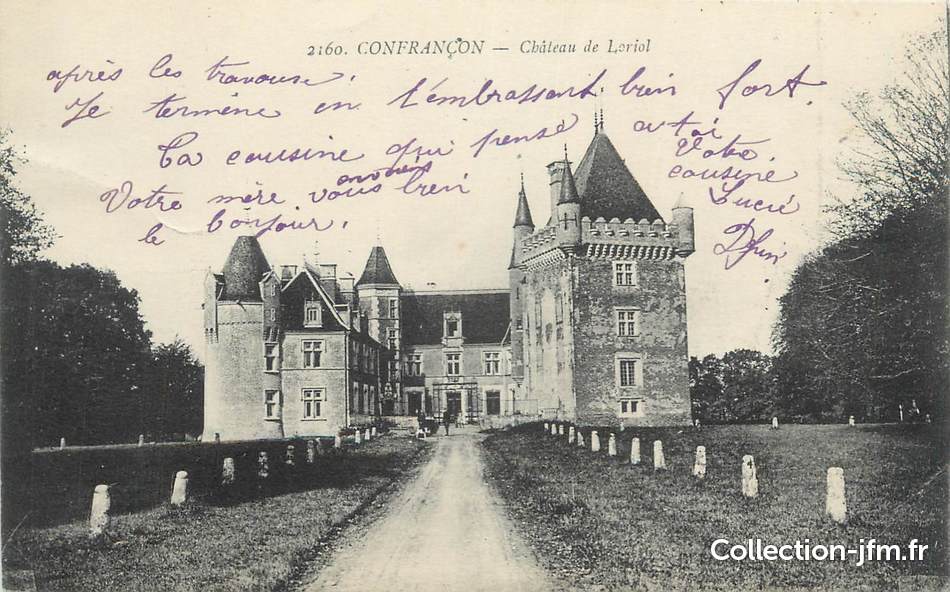 2160. CONFRANÇON — Château de Loriol
après les travause.
Je termine en t'embrassant bien fort.
Ta cousine qui pense a toi
Votre mère vous envoies bien
le bonjour.
Votre
cousine
Lucie
Collection-jfm.fr